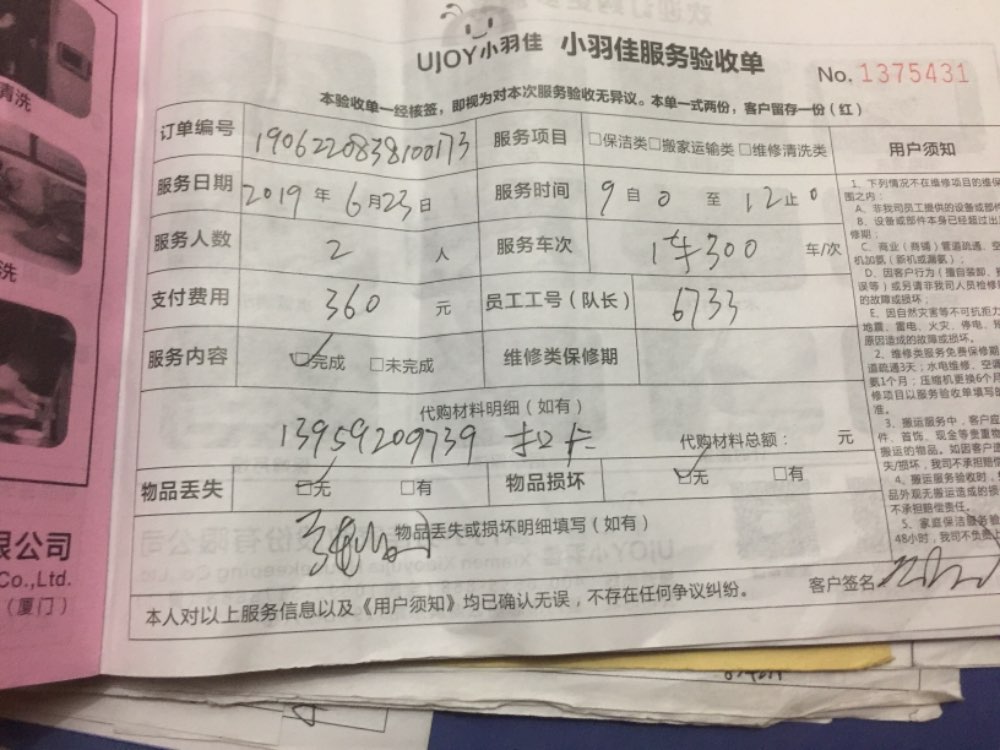 清洗
洗
限公司
Co.,Ltd.
（厦门）
UJOY小羽佳 小羽佳服务验收单
No. 1375431
本验收单一经核签，即视为对本次服务验收无异议。本单一式两份，客户留存一份（红）
订单编号 1906220838100173 服务项目 □保洁类□搬家运输类□维修清洗类 用户须知
服务日期 2019年6月23日 服务时间 9自0至12止0
服务人数 2人 服务车次 1车300 车/次
支付费用 360元 员工工号（队长） 6733
服务内容 □完成 □未完成 维修类保修期
代购材料明细（如有）
13959209739 扣卡 代购材料总额： 元
物品丢失 □无 □有 物品损坏 □无 □有
物品丢失或损坏明细填写（如有）
客户签名
本人对以上服务信息以及《用户须知》均已确认无误，不存在任何争议纠纷。
1、下列情况不在维修项目的维保
围之内：
A、非我司员工提供的设备或部件
B、设备或部件本身已经超过出
修期；
C、商业（商铺）管道疏通、空
机加氨（新机或漏氨）；
D、因客户行为（擅自装卸、
误等）或另请非我司人员检修
的故障或损坏；
E、因自然灾害等不可抗拒力
地震、雷电、火灾、停电、
原因造成的故障或损坏。
2、维修类服务免费保修期
道疏通3天；水电维修、空调
氨1个月；压缩机更换6个月
修项目以服务验收单填写
准。
3、搬运服务中，客户应
件、首饰、现金等贵重物
搬运的物品。如因客户
失/损坏，我司不承担赔偿
4、搬运服务验收时，
品外观无搬运造成的损
不承担赔偿责任。
5、家庭保洁服务验
48小时，我司不负责